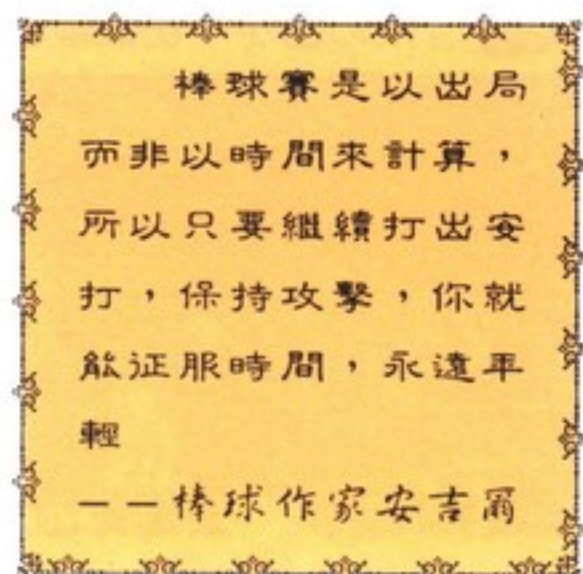 棒球賽是以出局
而非以時間來計算，
所以只要繼續打出安
打，保持攻擊，你就
能征服時間，永遠年
輕
——棒球作家安吉爾